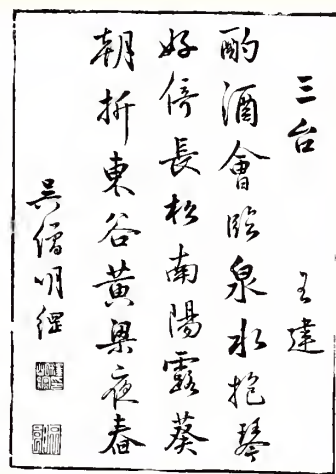 三台
王建
酌酒會臨泉水抱琴
好倚長松南陽露葵
朝折東谷黃梁夜舂
吳僧明